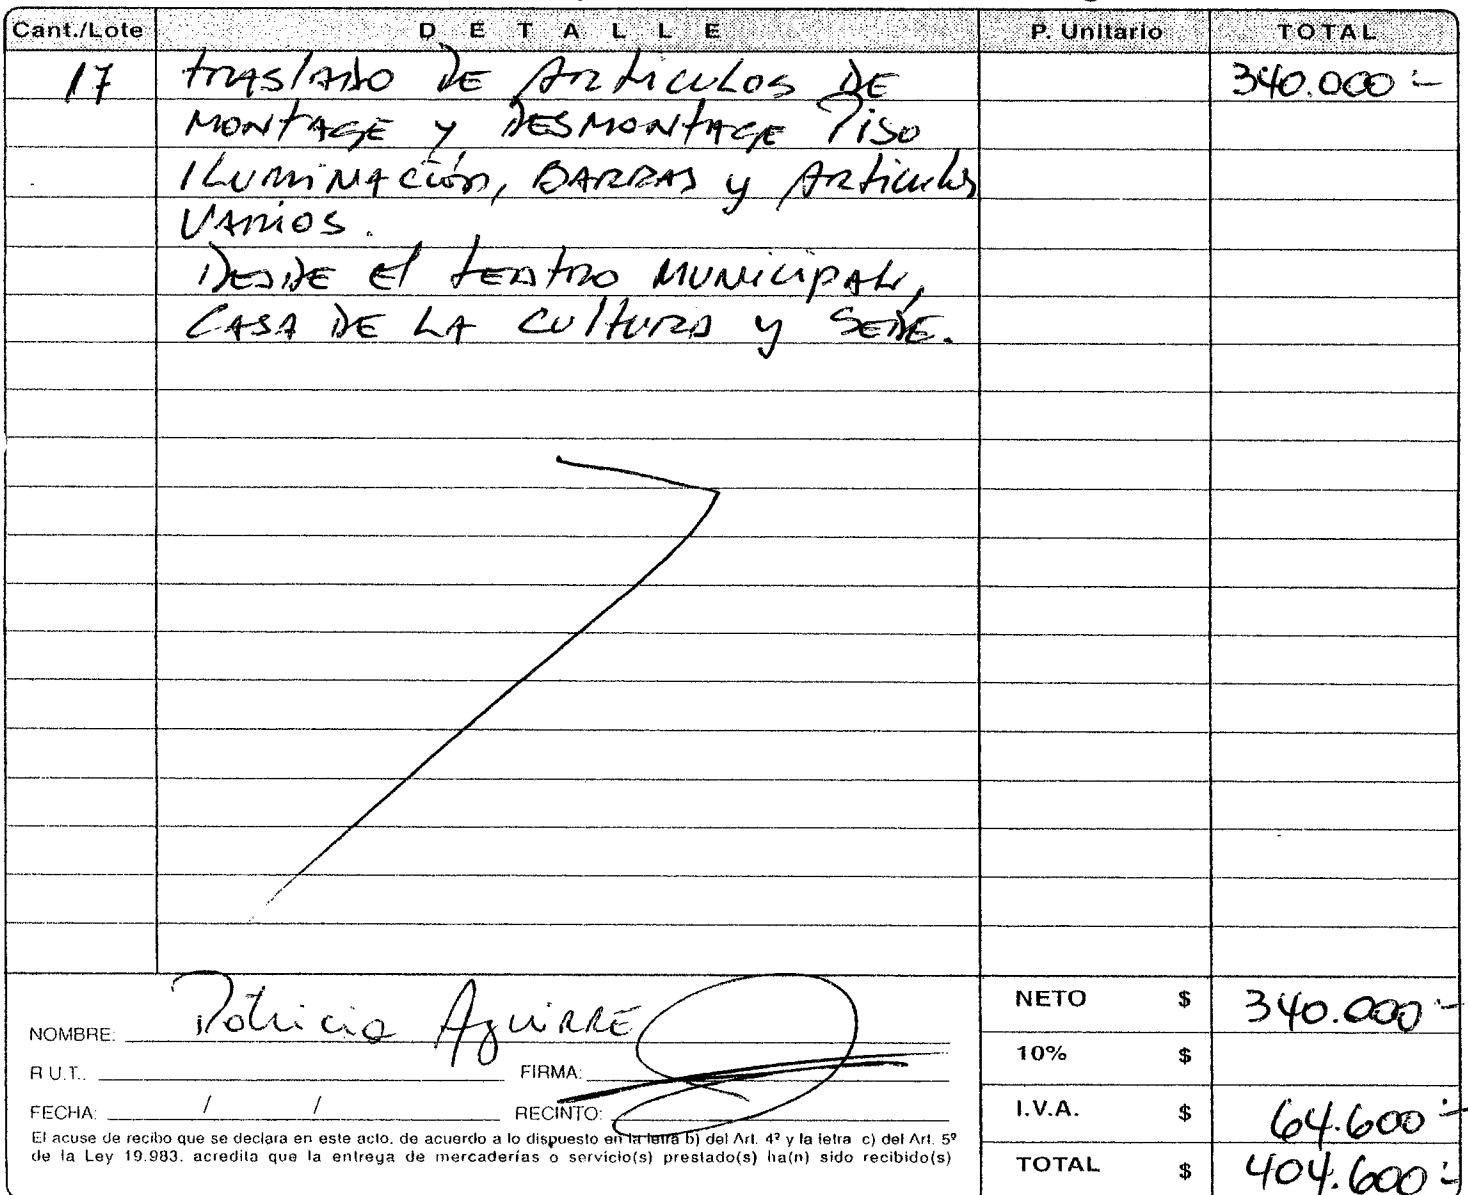 Cant./Lote DETALLE P. Unitario TOTAL
17 trAslADO DE ArtiCulos DE 340.000.-
MONTAGE y DESMONTAGE Piso
IluminACión, BARRAS y Articulos
VARios.
DESDE el teatro MUNiCipAl,
CASA DE LA CultURA y SEDE.
NETO $ 340.000.-
NOMBRE: Patricia AguiRRE
10% $
R.U.T.: FIRMA:
FECHA: / / RECINTO:
I.V.A. $ 64.600.-
El acuse de recibo que se declara en este acto, de acuerdo a lo dispuesto en la letra b) del Art. 4º y la letra c) del Art. 5º
de la Ley 19.983, acredita que la entrega de mercaderías o servicio(s) prestado(s) ha(n) sido recibido(s)
TOTAL $ 404.600.-